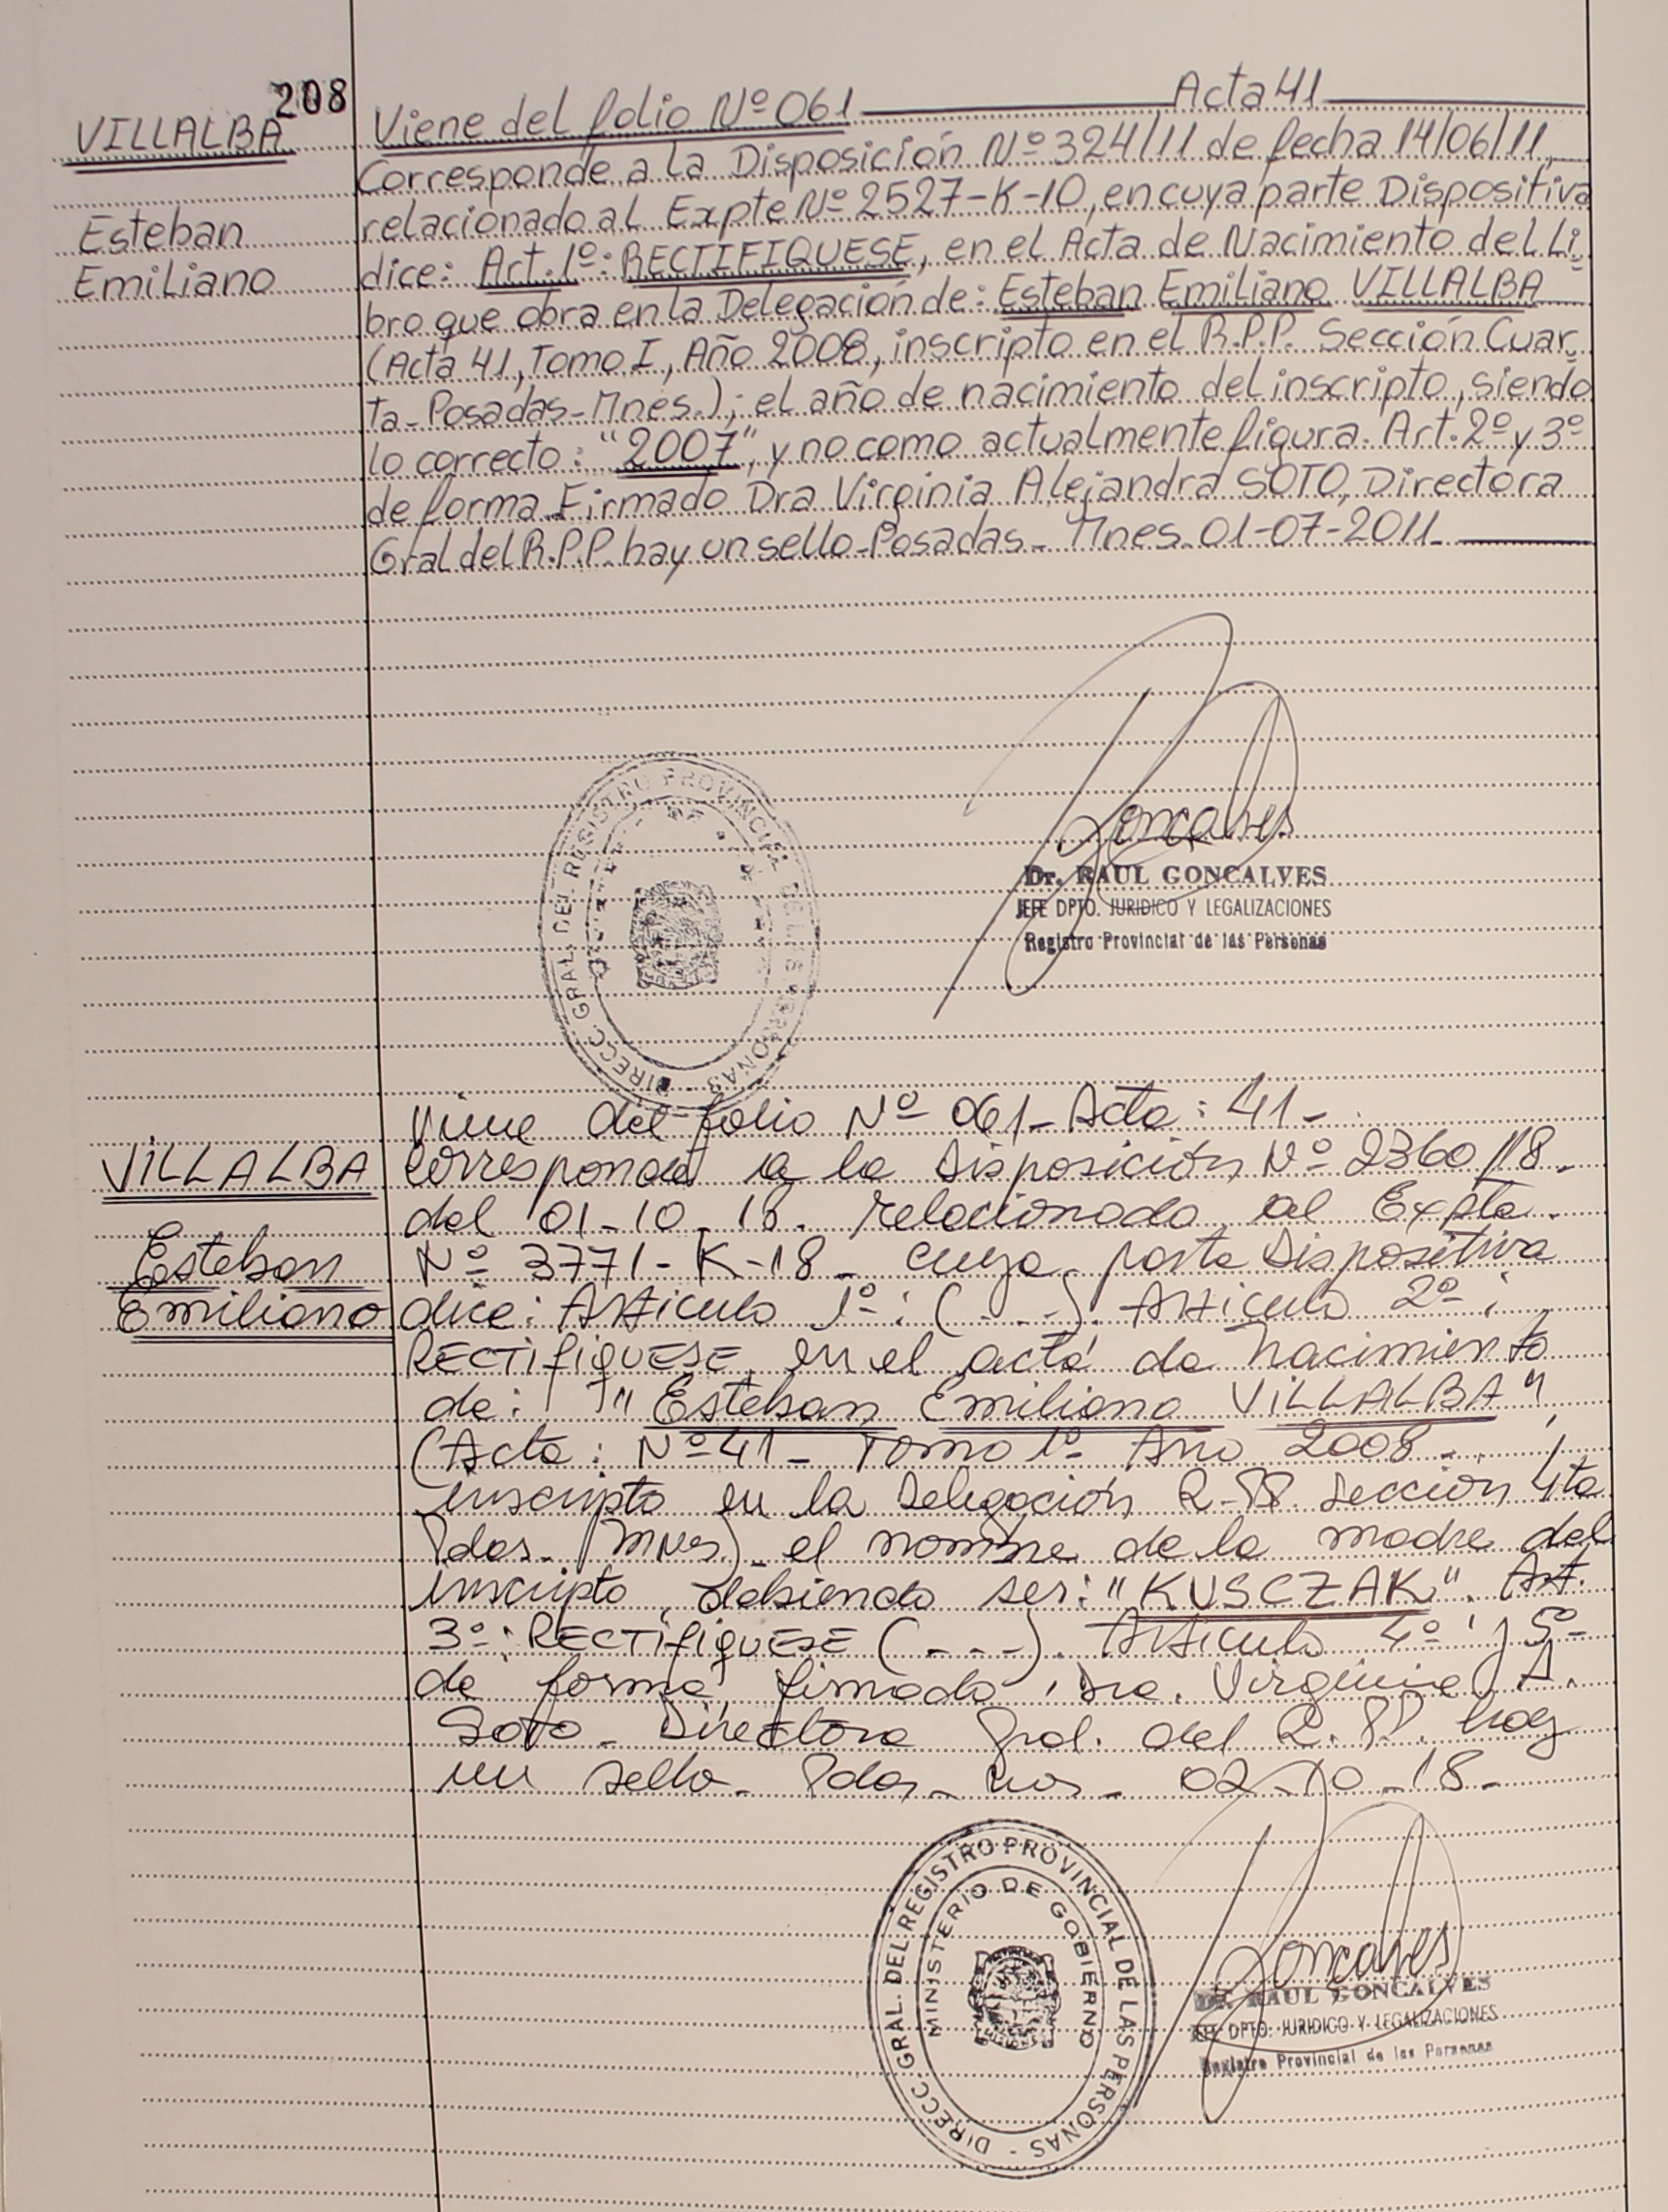 208
VILLALBA
Esteban
Emiliano
Viene del folio Nº 061 Acta 41
Corresponde a la Disposición Nº 324/11 de fecha 14/06/11,
relacionado al Expte Nº 2527-K-10, en cuya parte Dispositiva
dice: Art. 1º: RECTIFIQUESE, en el Acta de Nacimiento del Li-
bro que obra en la Delegación de: Esteban Emiliano VILLALBA
(Acta 41, Tomo I, Año 2008, inscripto en el R.P.P. Sección Cuar-
ta-Posadas-Mnes.); el año de nacimiento del inscripto, siendo
lo correcto: "2007", y no como actualmente figura. Art. 2º y 3º
de forma. Firmado Dra Virginia Alejandra SOTO, Directora
Gral del R.P.P. hay un sello-Posadas- Mnes. 01-07-2011.
DIRECC. GRAL. DEL REGISTRO PROVINCIAL DE LAS PERSONAS
Goncalves
Dr. RAUL GONCALVES
JEFE DPTO. JURIDICO Y LEGALIZACIONES
Registro Provincial de las Personas
VILLALBA
Esteban
Emiliano
Viene del folio Nº 061- Acta: 41-
Corresponde a la Disposición Nº 2360/18.
del 01-10-18. relacionado al Expte.
Nº 3771-K-18- cuya parte Dispositiva
dice: Articulo 1º: (---). Articulo 2º:
RECTIFIQUESE, en el acta de nacimiento
de: "Esteban Emiliano VILLALBA",
(Acta: Nº 41- Tomo 1º Año 2008-
inscripto en la Delegación R.PP. Sección 4ta
Pdas- Mnes)- el nombre de la madre del
inscripto, debiendo ser: "KUSCZAK". Art.
3º: RECTIFIQUESE (---). Articulo 4º y 5º
de forma, firmado Dra. Virginia A.
Soto- Directora Gral. del R.PP. hay
un sello- Pdas- Mnes- 02-10-18-
DIRECC. GRAL. DEL REGISTRO PROVINCIAL DE LAS PERSONAS -
MINISTERIO DE GOBIERNO
Goncalves
Dr. RAUL GONCALVES
JEFE DPTO. JURIDICO Y LEGALIZACIONES
Registro Provincial de las Personas